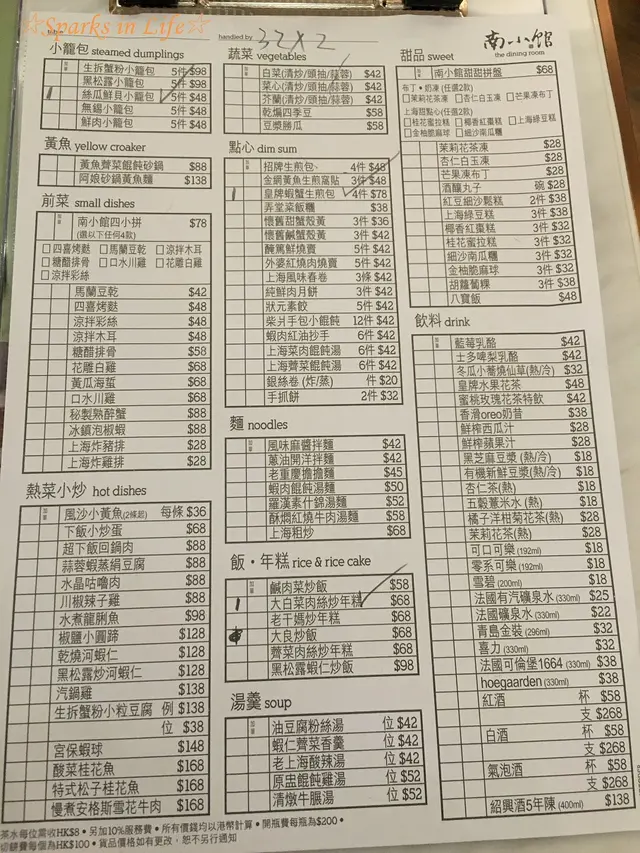 ☆Sparks in Life☆
handled by 32X2
南小館
the dining room
小籠包 steamed dumplings
生拆蟹粉小籠包 5件 $98
黑松露小籠包 5件 $98
絲瓜鮮貝小籠包 5件 $48
無錫小籠包 5件 $48
鮮肉小籠包 5件 $48
黃魚 yellow croaker
黃魚薺菜餛飩砂鍋 $88
阿娘砂鍋黃魚麵 $138
前菜 small dishes
南小館四小拼 $78
(選以下任何4款)
□四喜烤麩 □馬蘭豆乾 □涼拌木耳
□糖醋排骨 □口水川雞 □花雕白雞
□涼拌彩絲
馬蘭豆乾 $42
四喜烤麩 $48
涼拌彩絲 $48
涼拌木耳 $48
糖醋排骨 $58
花雕白雞 $68
黃瓜海蜇 $68
口水川雞 $68
秘製熟醉蟹 $88
冰鎮泡椒蝦 $88
上海炸豬排 $28
上海炸雞排 $28
熱菜小炒 hot dishes
風沙小黃魚(2條起) 每條 $36
下飯小炒蛋 $68
超下飯回鍋肉 $88
蒜蓉蝦蒸絹豆腐 $88
水晶咕嚕肉 $88
川椒辣子雞 $88
水煮龍脷魚 $98
椒鹽小圓蹄 $128
乾燒河蝦仁 $128
黑松露炒河蝦仁 $128
汽鍋雞 $138
生拆蟹粉小粒豆腐 例 $138
位 $38
宮保蝦球 $148
酸菜桂花魚 $168
特式松子桂花魚 $168
慢煮安格斯雪花牛肉 $168
蔬菜 vegetables
白菜(清炒/頭抽/蒜蓉) $42
菜心(清炒/頭抽/蒜蓉) $42
芥蘭(清炒/頭抽/蒜蓉) $42
乾煸四季豆 $58
豆漿勝瓜 $58
點心 dim sum
招牌生煎包 4件 $48
金網黃魚生煎窩貼 3件 $48
皇牌蝦蟹生煎包 4件 $78
弄堂菜飯糰 $38
懷舊甜蟹殼黃 3件 $36
懷舊鹹蟹殼黃 3件 $42
醃篤鮮燒賣 5件 $42
外婆紅燒肉燒賣 5件 $42
上海風味春卷 3條 $42
純鮮肉月餅 3件 $42
狀元素餃 5件 $42
柴爿手包小餛飩 12件 $42
蝦肉紅油抄手 6件 $42
上海菜肉餛飩湯 6件 $42
上海薺菜餛飩湯 6件 $42
銀絲卷 (炸/蒸) 件 $20
手抓餅 2件 $32
麵 noodles
風味麻醬拌麵 $42
蔥油開洋拌麵 $42
老重慶擔擔麵 $45
蝦肉餛飩湯麵 $50
羅漢素什錦湯麵 $52
酥燜紅燒牛肉湯麵 $58
上海粗炒 $68
飯・年糕 rice & rice cake
鹹肉菜炒飯 $58
大白菜肉絲炒年糕 $68
老干媽炒年糕 $68
大良炒飯 $68
薺菜肉絲炒年糕 $68
黑松露蝦仁炒飯 $98
湯羹 soup
油豆腐粉絲湯 位 $42
蝦仁薺菜香羹 位 $42
老上海酸辣湯 位 $42
原盅餛飩雞湯 位 $52
清燉牛腒湯 位 $52
甜品 sweet
南小館甜甜拼盤 $68
布丁・奶凍 (任選2款)
□茉莉花茶凍 □杏仁白玉凍 □芒果凍布丁
上海甜點心(任選2款)
□桂花蜜拉糕 □椰香紅棗糕 □上海綠豆糕
□金柚脆麻球 □細沙南瓜糰
茉莉花茶凍 $28
杏仁白玉凍 $28
芒果凍布丁 $28
酒釀丸子 碗 $28
紅豆細沙鬆糕 2件 $38
上海綠豆糕 3件 $38
椰香紅棗糕 3件 $32
桂花蜜拉糕 3件 $32
細沙南瓜糰 3件 $32
金柚脆麻球 3件 $32
胡蘿蔔粿 3件 $38
八寶飯 $48
飲料 drink
藍莓乳酪 $42
士多啤梨乳酪 $42
冬瓜小薏燒仙草(熱/冷) $32
皇牌水果花茶 $48
蜜桃玫瑰花茶特飲 $42
香滑oreo奶昔 $38
鮮榨西瓜汁 $28
鮮榨蘋果汁 $28
黑芝麻豆漿 (熱/冷) $18
有機新鮮豆漿(熱/冷) $18
杏仁茶(熱) $25
五穀薏米水 (熱) $18
橘子洋柑菊花茶(熱) $28
茉莉花茶(熱) $28
可口可樂 (192ml) $18
零系可樂 (192ml) $18
雪碧 (200ml) $18
法國有汽礦泉水 (330ml) $25
法國礦泉水 (330ml) $22
青島金裝 (296ml) $32
喜力 (330ml) $32
法國可倫堡1664 (330ml) $38
hoegaarden (330ml) $38
紅酒 杯 $58
支 $268
白酒 杯 $58
支 $268
氣泡酒 杯 $58
支 $268
紹興酒5年陳 (400ml) $138
茶水每位需收HK$8・另加10%服務費・所有價錢均以港幣計算・開瓶費每瓶為$200・
切餅費每個為HK$100・貨品價格如有更改，恕不另行通知